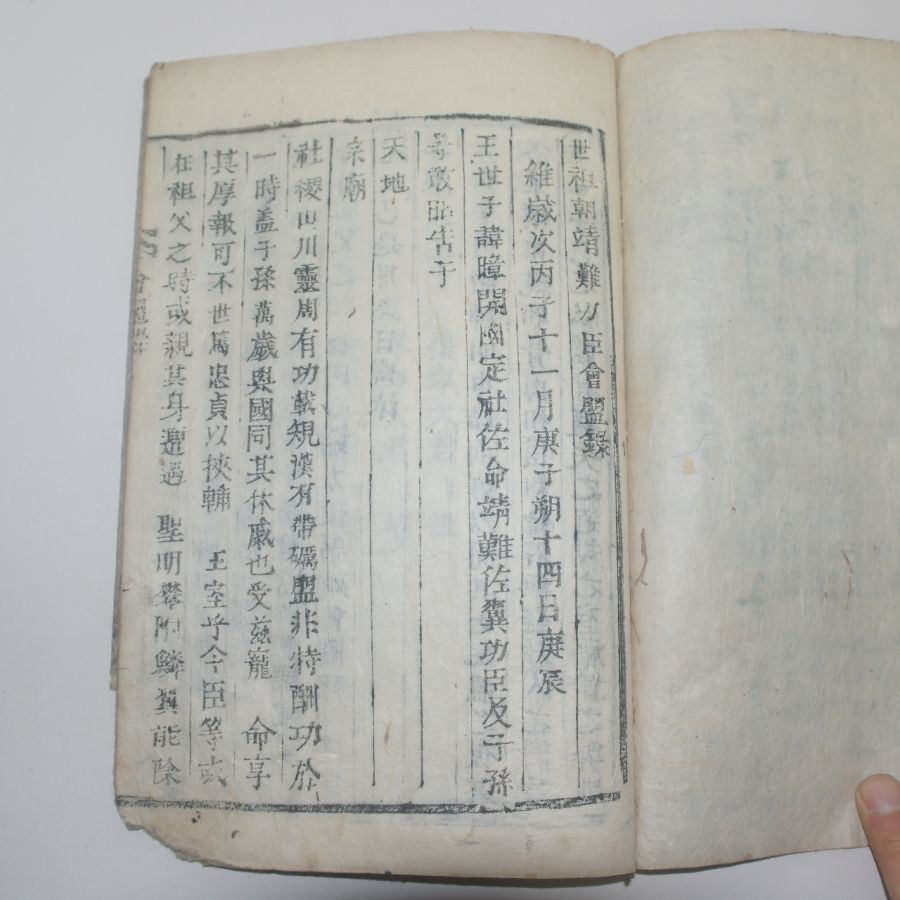 世祖朝靖難功臣會盟錄
維歲次丙子十一月庚子朔十四日庚辰
王世子諱暲開國定社佐命靖難佐翼功臣及子孫
等敢昭告于
天地
宗廟
社稷山川靈周有功載規漢有帶礪盟非特酬功於
一時盖子孫萬歲與國同其休戚也受玆寵 命享
其厚報可不世篤忠貞以挾輔 王室乎今臣等或
在祖父之時或親其身遭遇 聖明攀附鱗翼能除
會盟